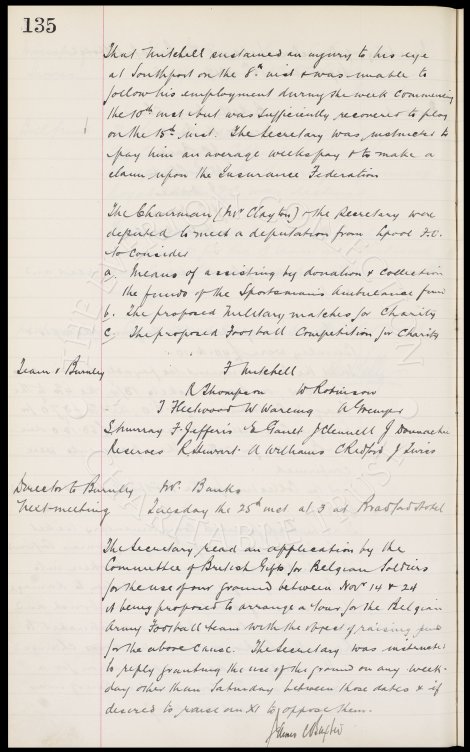 135
That Mitchell sustained an injury to his eye
at Southport on the 8th inst & was unable to
follow his employment during the week commencing
the 10th inst but was sufficiently recovered to play
on the 15th inst. The Secretary was instructed to
pay him an average weeks pay & to make a
claim upon the Insurance Federation
The Chairman (Mr Clayton) & the Secretary were
deputed to meet a deputation from Lpool F.C.
to consider
a. Means of assisting by donation & collection
the funds of the Sportsmans Ambulance fund
b. The proposed Military matches for Charity
c. The proposed Football Competition for Charity
Team v Burnley F Mitchell
R Thompson W Robinson
T Fleetwood W Wareing A Grenyer
S Murray F Jefferis E Gault J Clennell J Donnachie
Reserves R Stewart A Williams C Redford J Jones
Director to Burnley Mr. Banks
Next meeting Tuesday the 25th inst at 3 at Bradford Hotel
The Secretary read an application by the
Committee of British Gifts for Belgian Soldiers
for the use of our ground between Novr 14 & 24
it being proposed to arrange a Tour for the Belgian
Army Football team with the object of raising funds
for the above cause. The Secretary was instructed
to reply granting the use of the ground on any week-
day other than Saturday between those dates & if
desired to raise an XI to oppose them.
James C Baxter